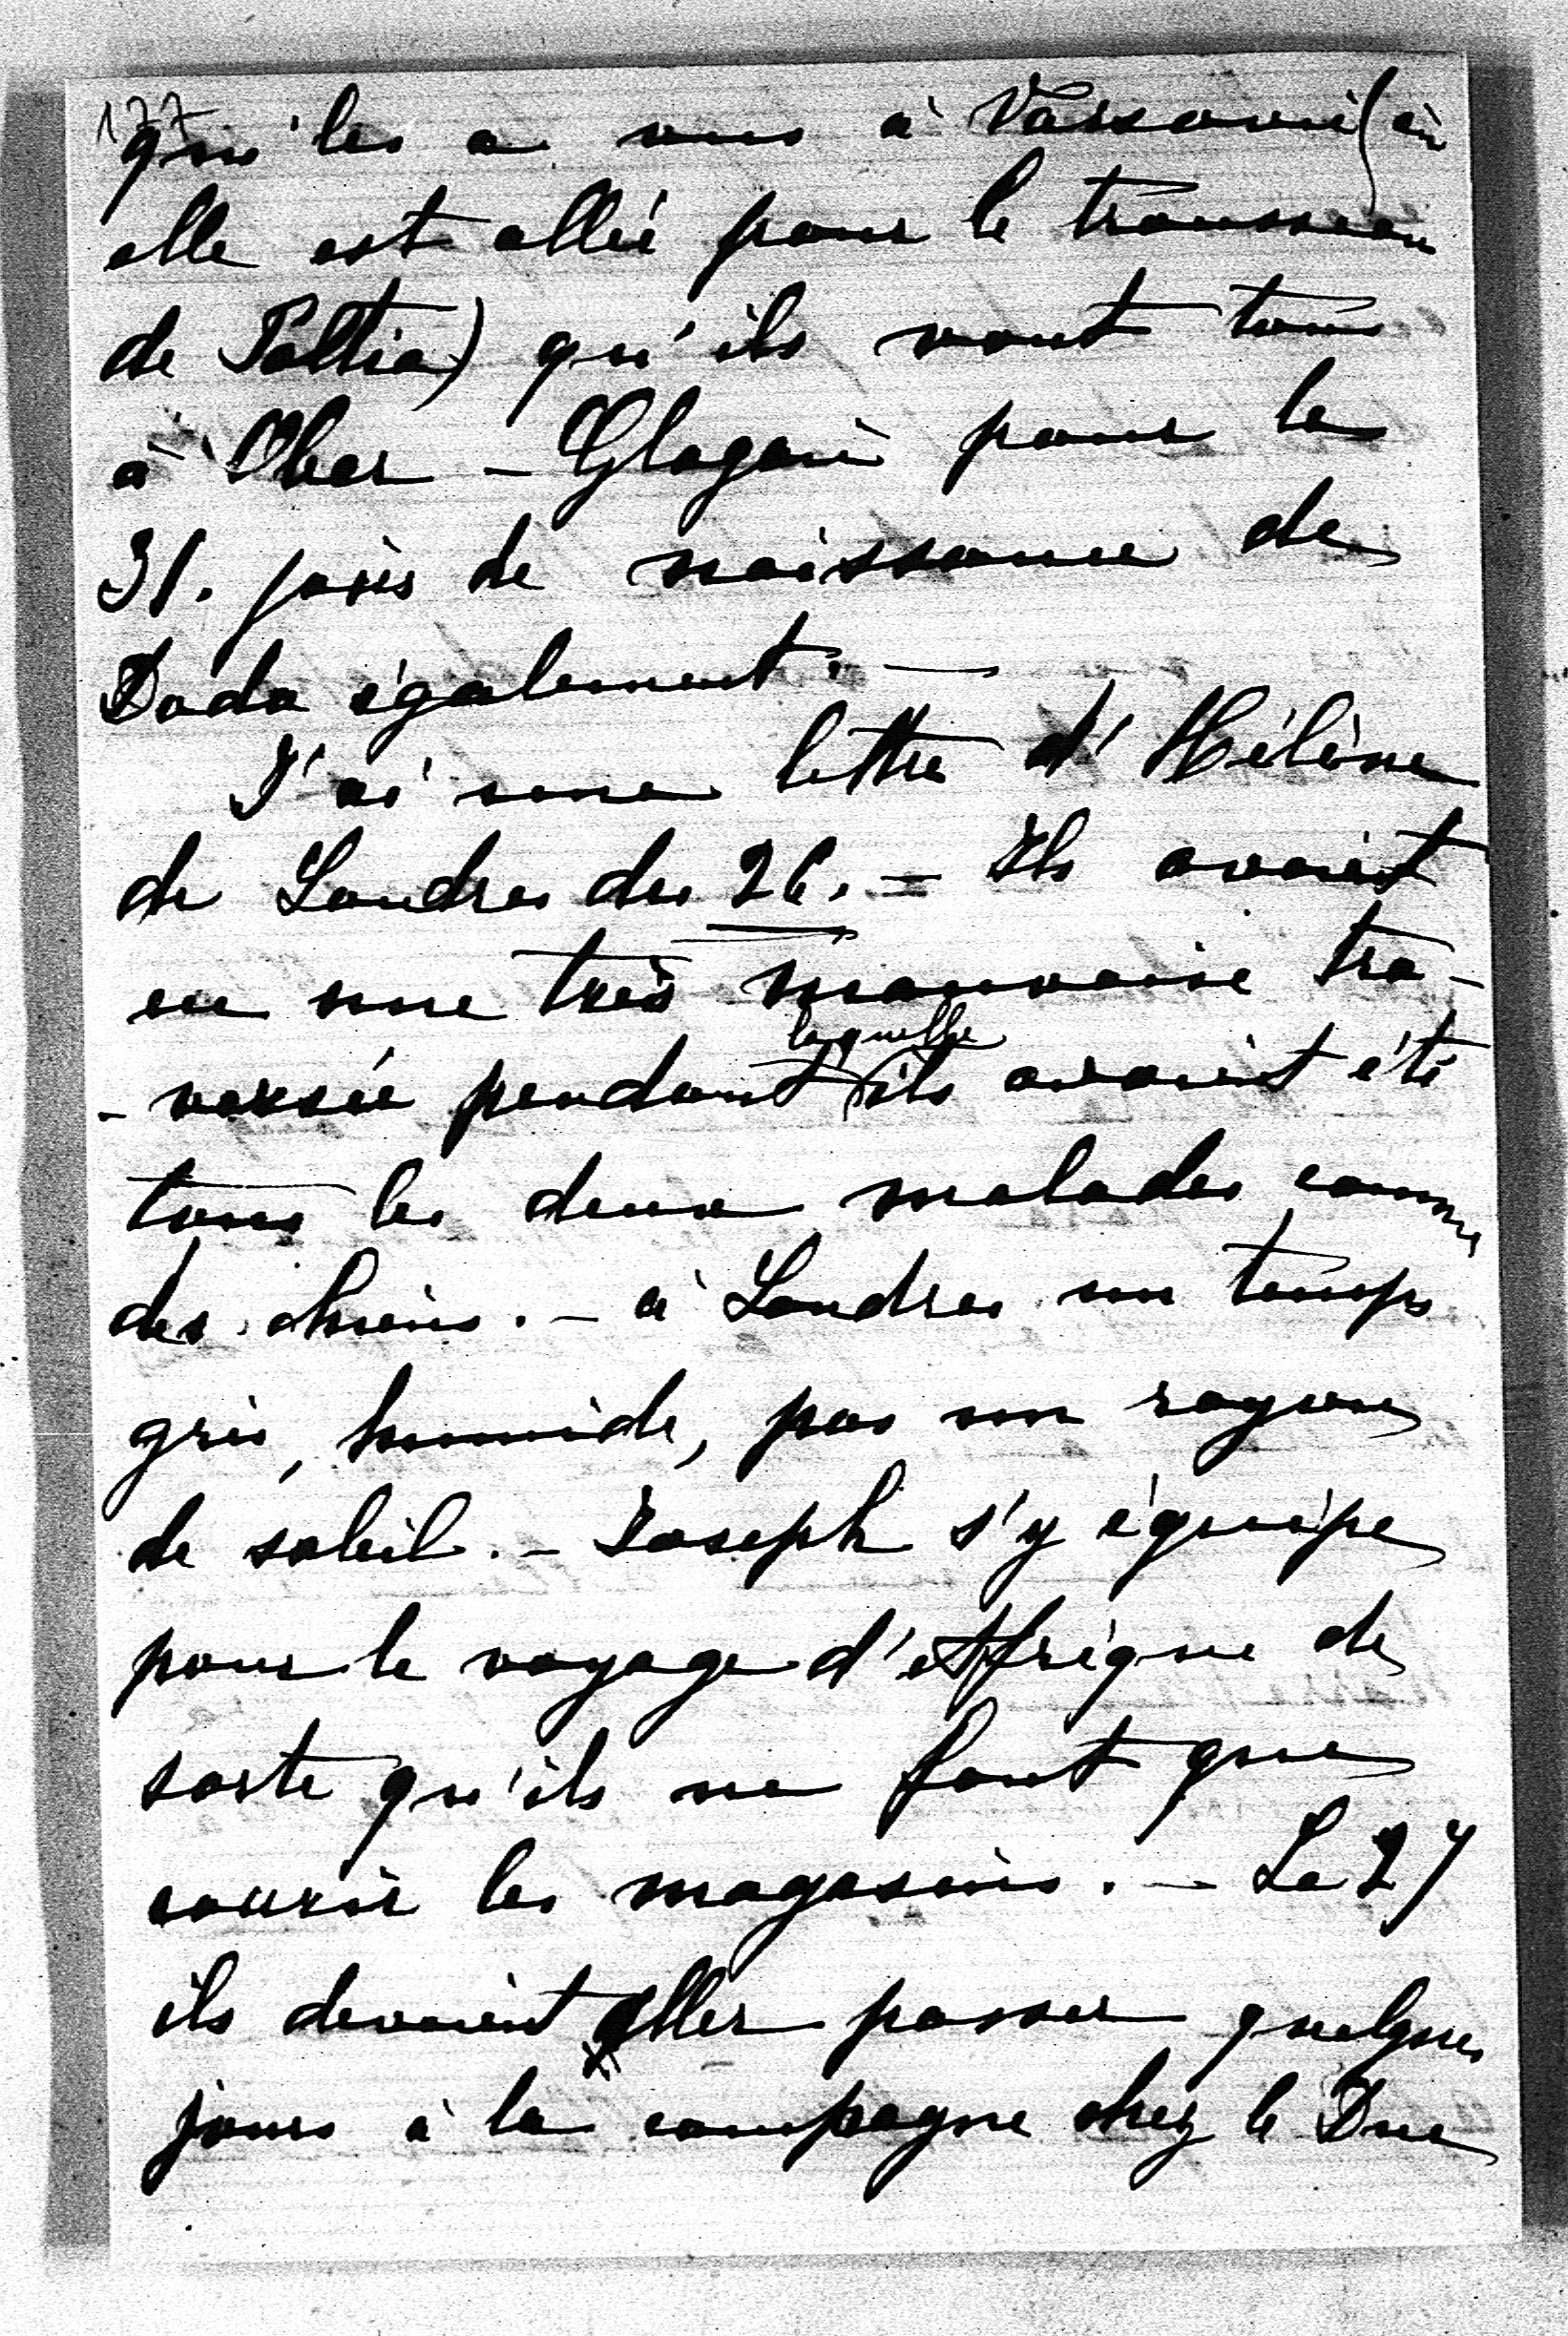 177
qui les a vus à Varsovie (où
elle est allée pour le trousseau
de Paltia) qu'ils vont tous
à Ober-Glogau pour le
31. jour de naissance de
Dodo également. —
J'ai une lettre d'Hélène
de Londres du 26. — Ils avaient
eu une très mauvaise tra-
laquelle
- versée pendant ils avaient été
tous les deux malades comme
des chiens. — à Londres un temps
gris, humide, pas un rayon
de soleil. — Joseph s'y équipe
pour le voyage d'Afrique de
sorte qu'ils ne font que
courir les magasins. — Le 27
ils devaient aller passer quelques
jours à la campagne chez le Duc